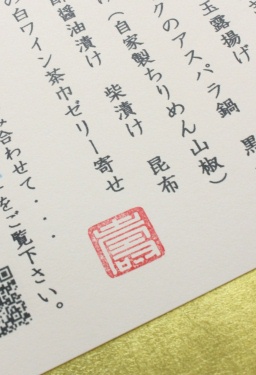 玉露揚げ
クのアスパラ鍋 黒
(自家製ちりめん山椒)
け 柴漬け 昆布
醤油漬け
白ワイン茶巾ゼリー寄せ
合わせて・・・・
をご覧下さい。